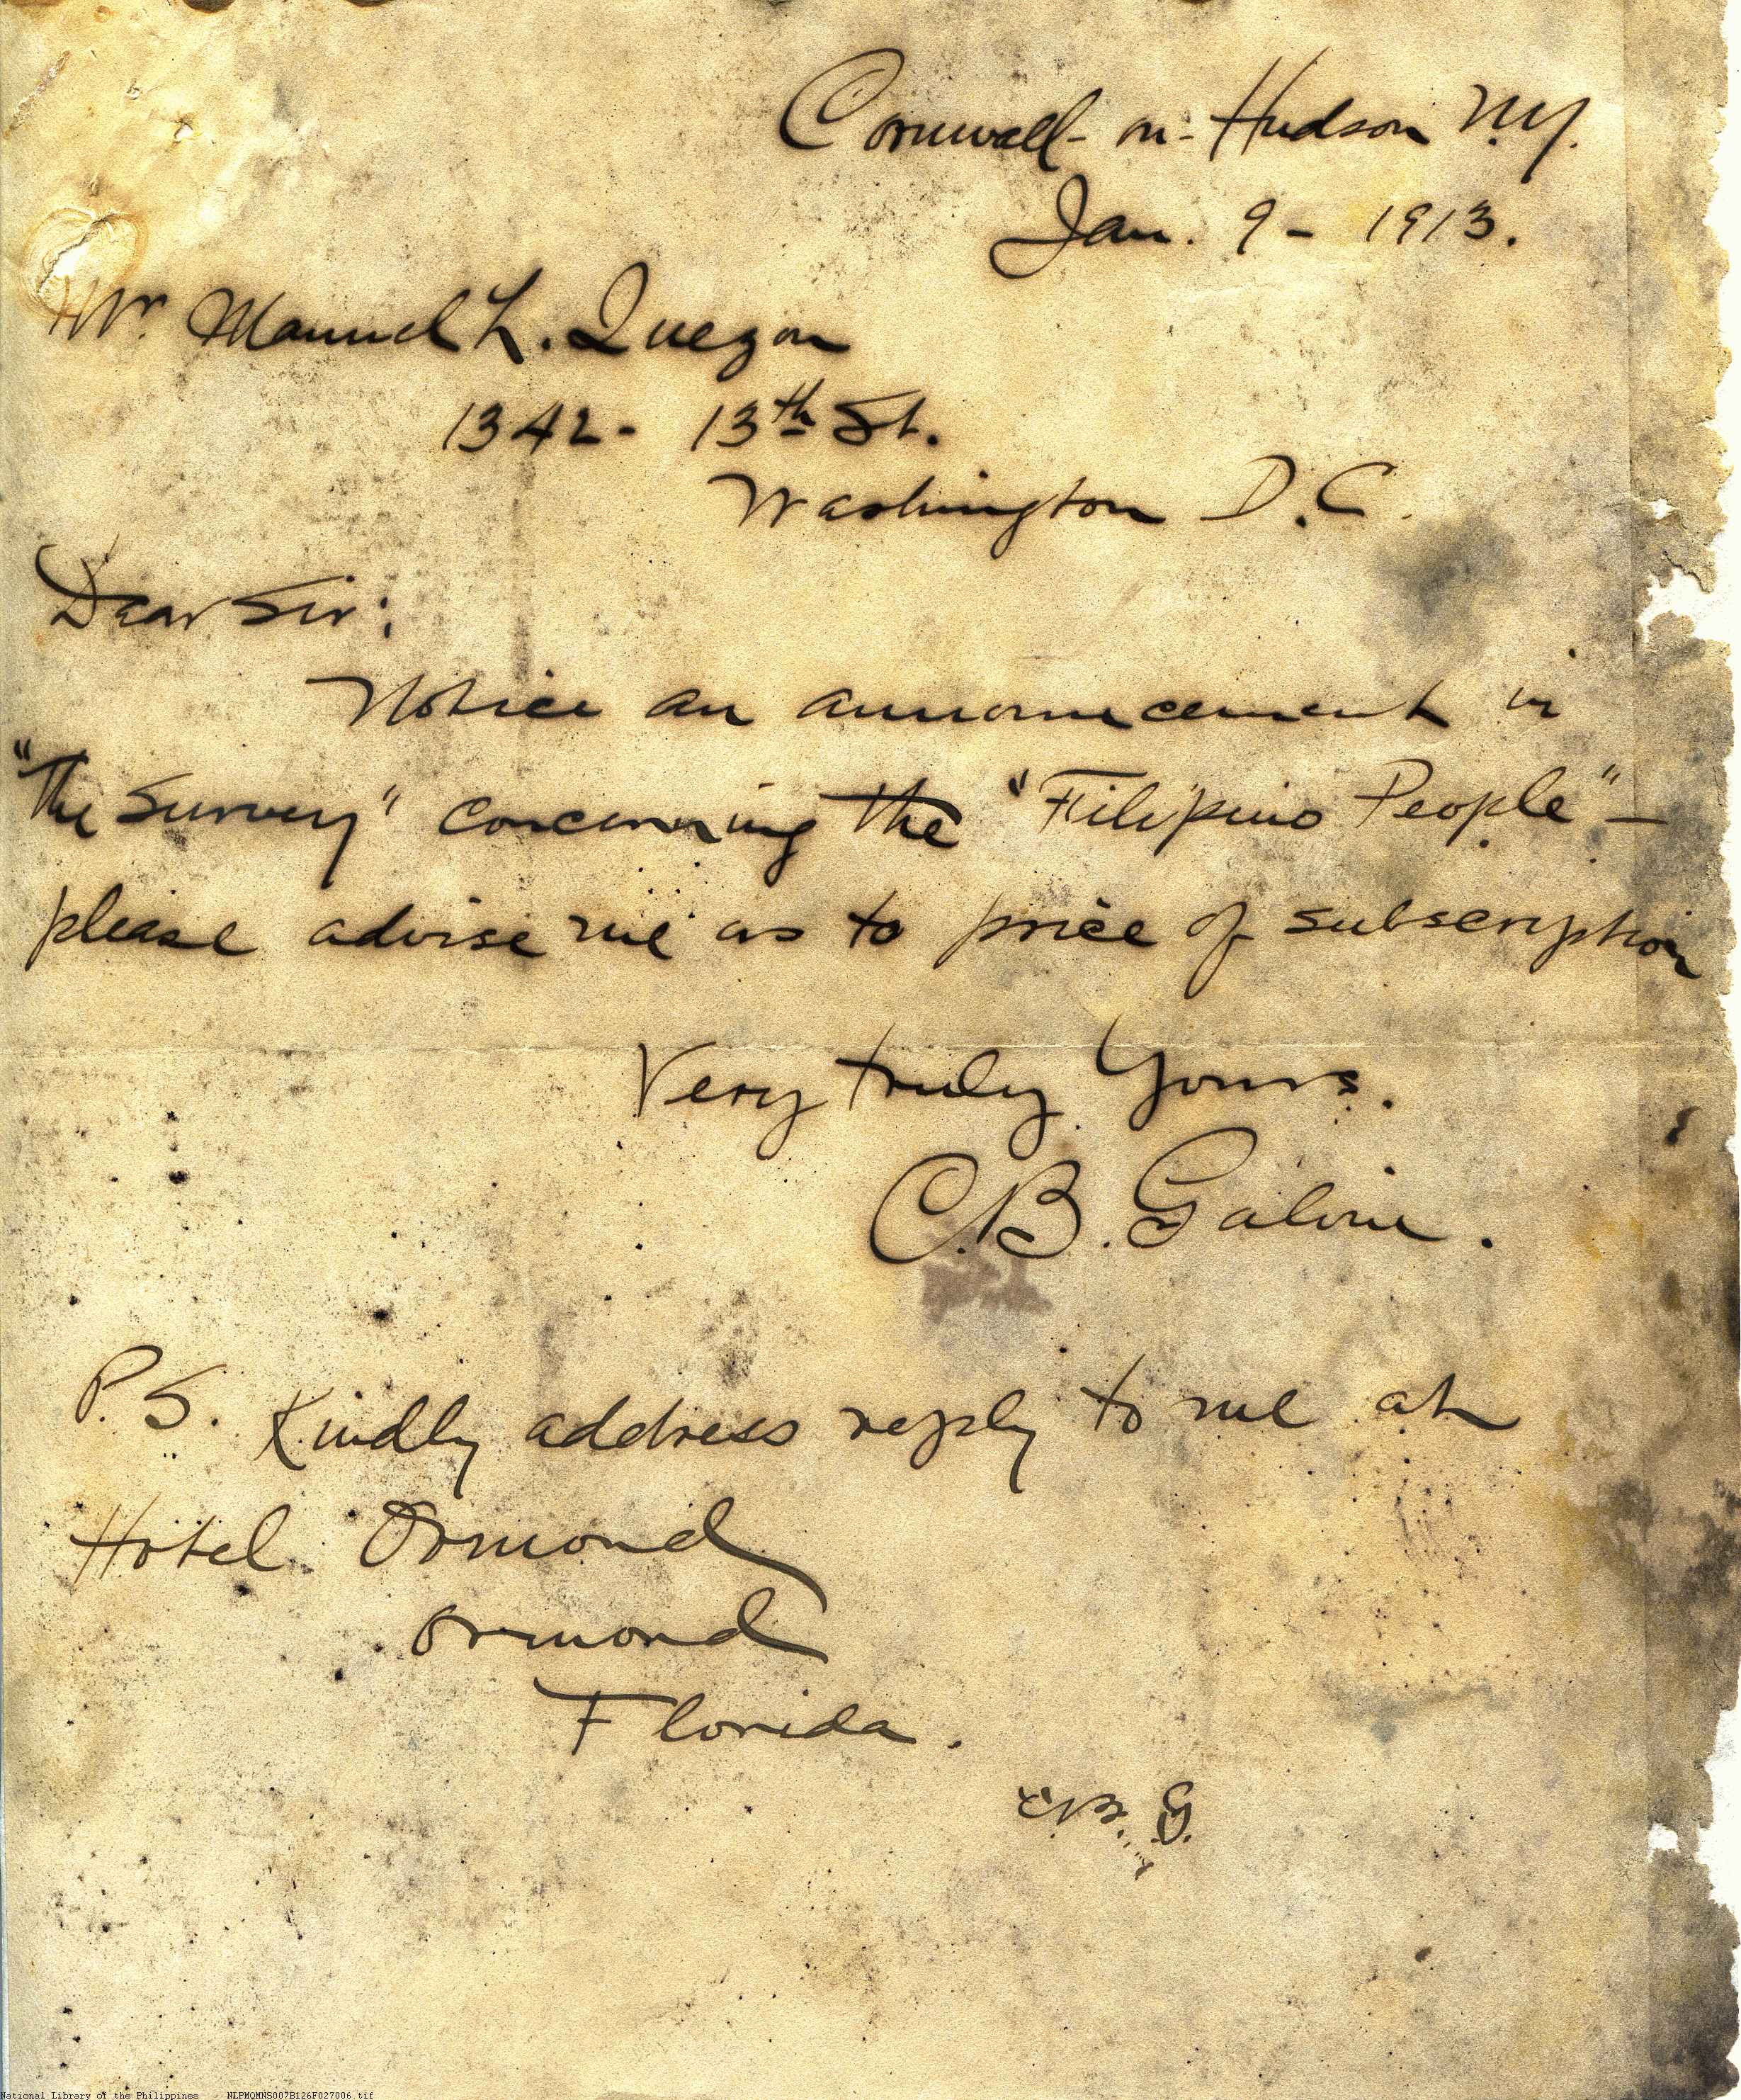 Cornwall-on-Hudson N.Y.
Jan. 9 - 1913.
Mr. Manuel L. Quezon
1342 - 13th St.
Washington D.C.
Dear Sir:
Notice an announcement in
"The Survey" concerning the "Filipino People" —
please advise me as to price of subscription
Very truly Yours.
C.B. Galvin.
P.S. Kindly address reply to me at
Hotel Ormond
Ormond
Florida.
C.B.G.
National Library of the Philippines NLPMQMNS007B126F027006.tif